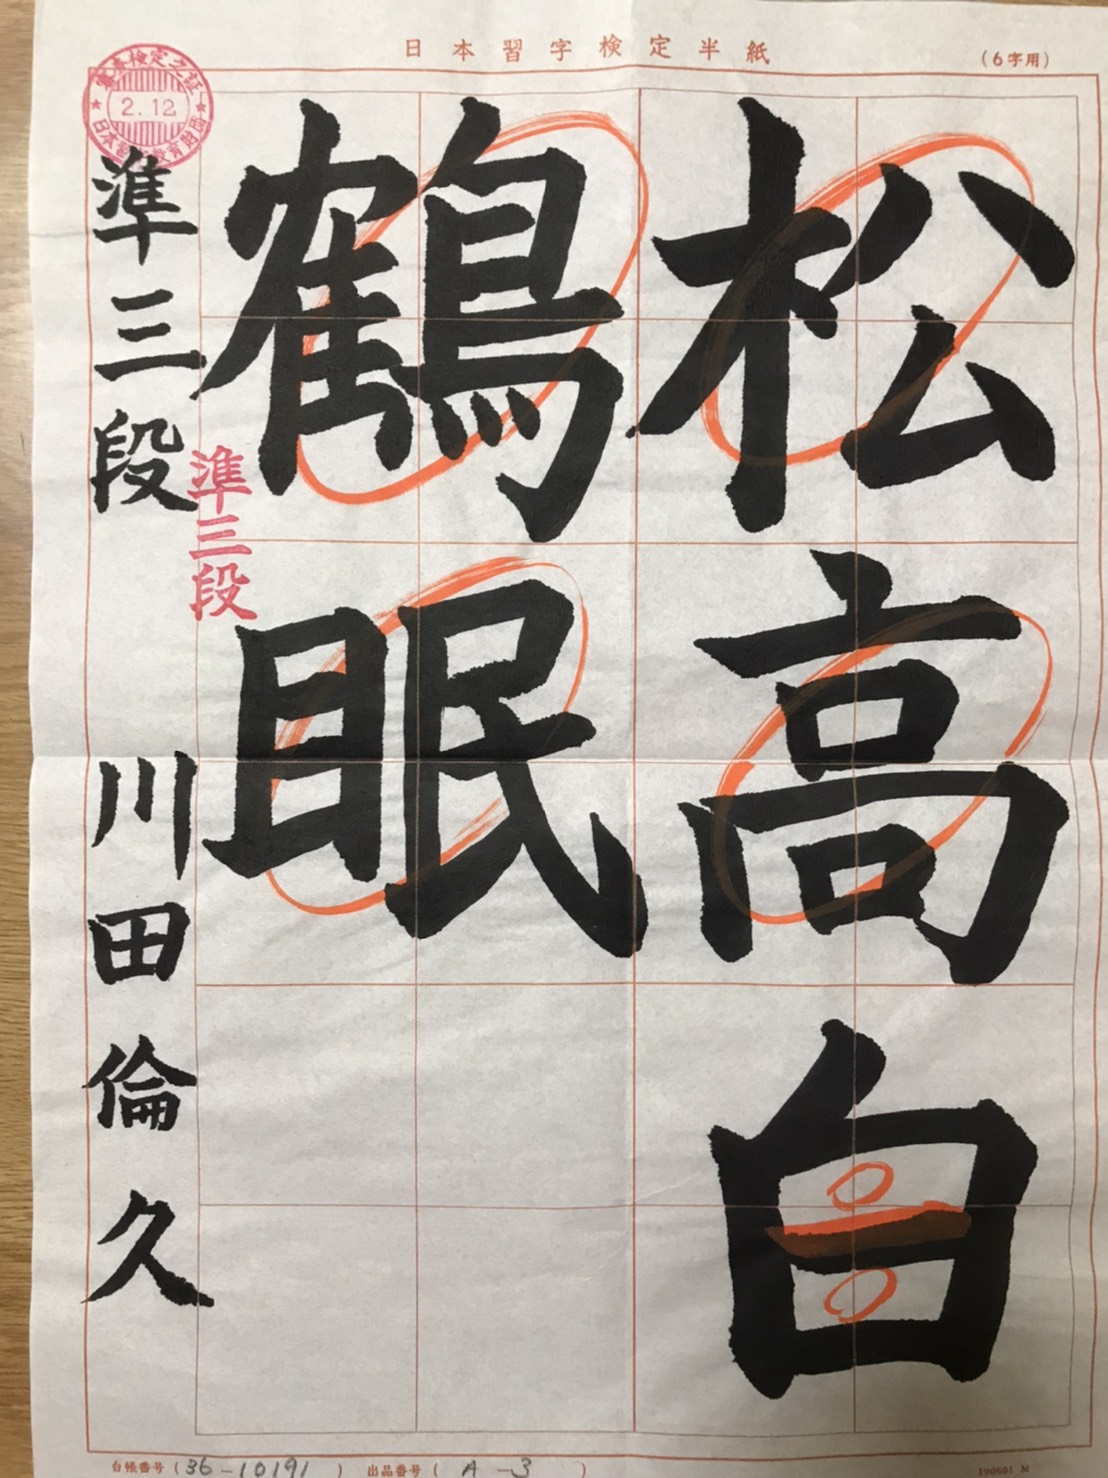 日本習字検定半紙
(6字用)
松高白
鶴眠
準三段 川田倫久
準三段
2.12
台帳番号 (36-10191)
出品番号 (A-3)
190601 M